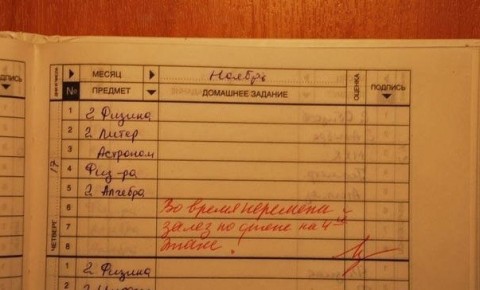 ДПИСЬ
МЕСЯЦ Ноябрь
№ ПРЕДМЕТ ДОМАШНЕЕ ЗАДАНИЕ ОЦЕНКА ПОДПИСЬ
1 2 Физика
2 2 Литер
3 Астроном
4 Физ-ра
5 2 Алгебра
6 Во время перемены
7 залез по стене на 4-ый
8 этаж.
17
ЧЕТВЕРГ
1 2 Физика
2 2